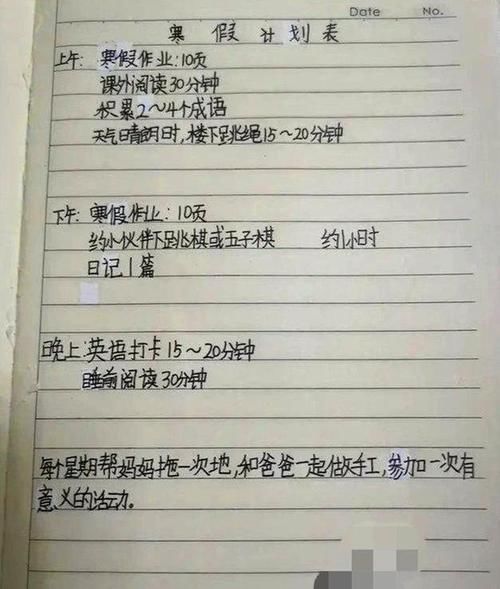 Date No.
寒假计划表
上午: 寒假作业:10页
课外阅读30分钟
积累2～4个成语
天气晴朗时,楼下跳绳15～20分钟
下午: 寒假作业:10页
约小伙伴下跳棋或五子棋 约1小时
日记1篇
晚上:英语打卡15～20分钟
睡前阅读30分钟
每个星期帮妈妈拖一次地,和爸爸一起做手工,参加一次有
意义的活动。